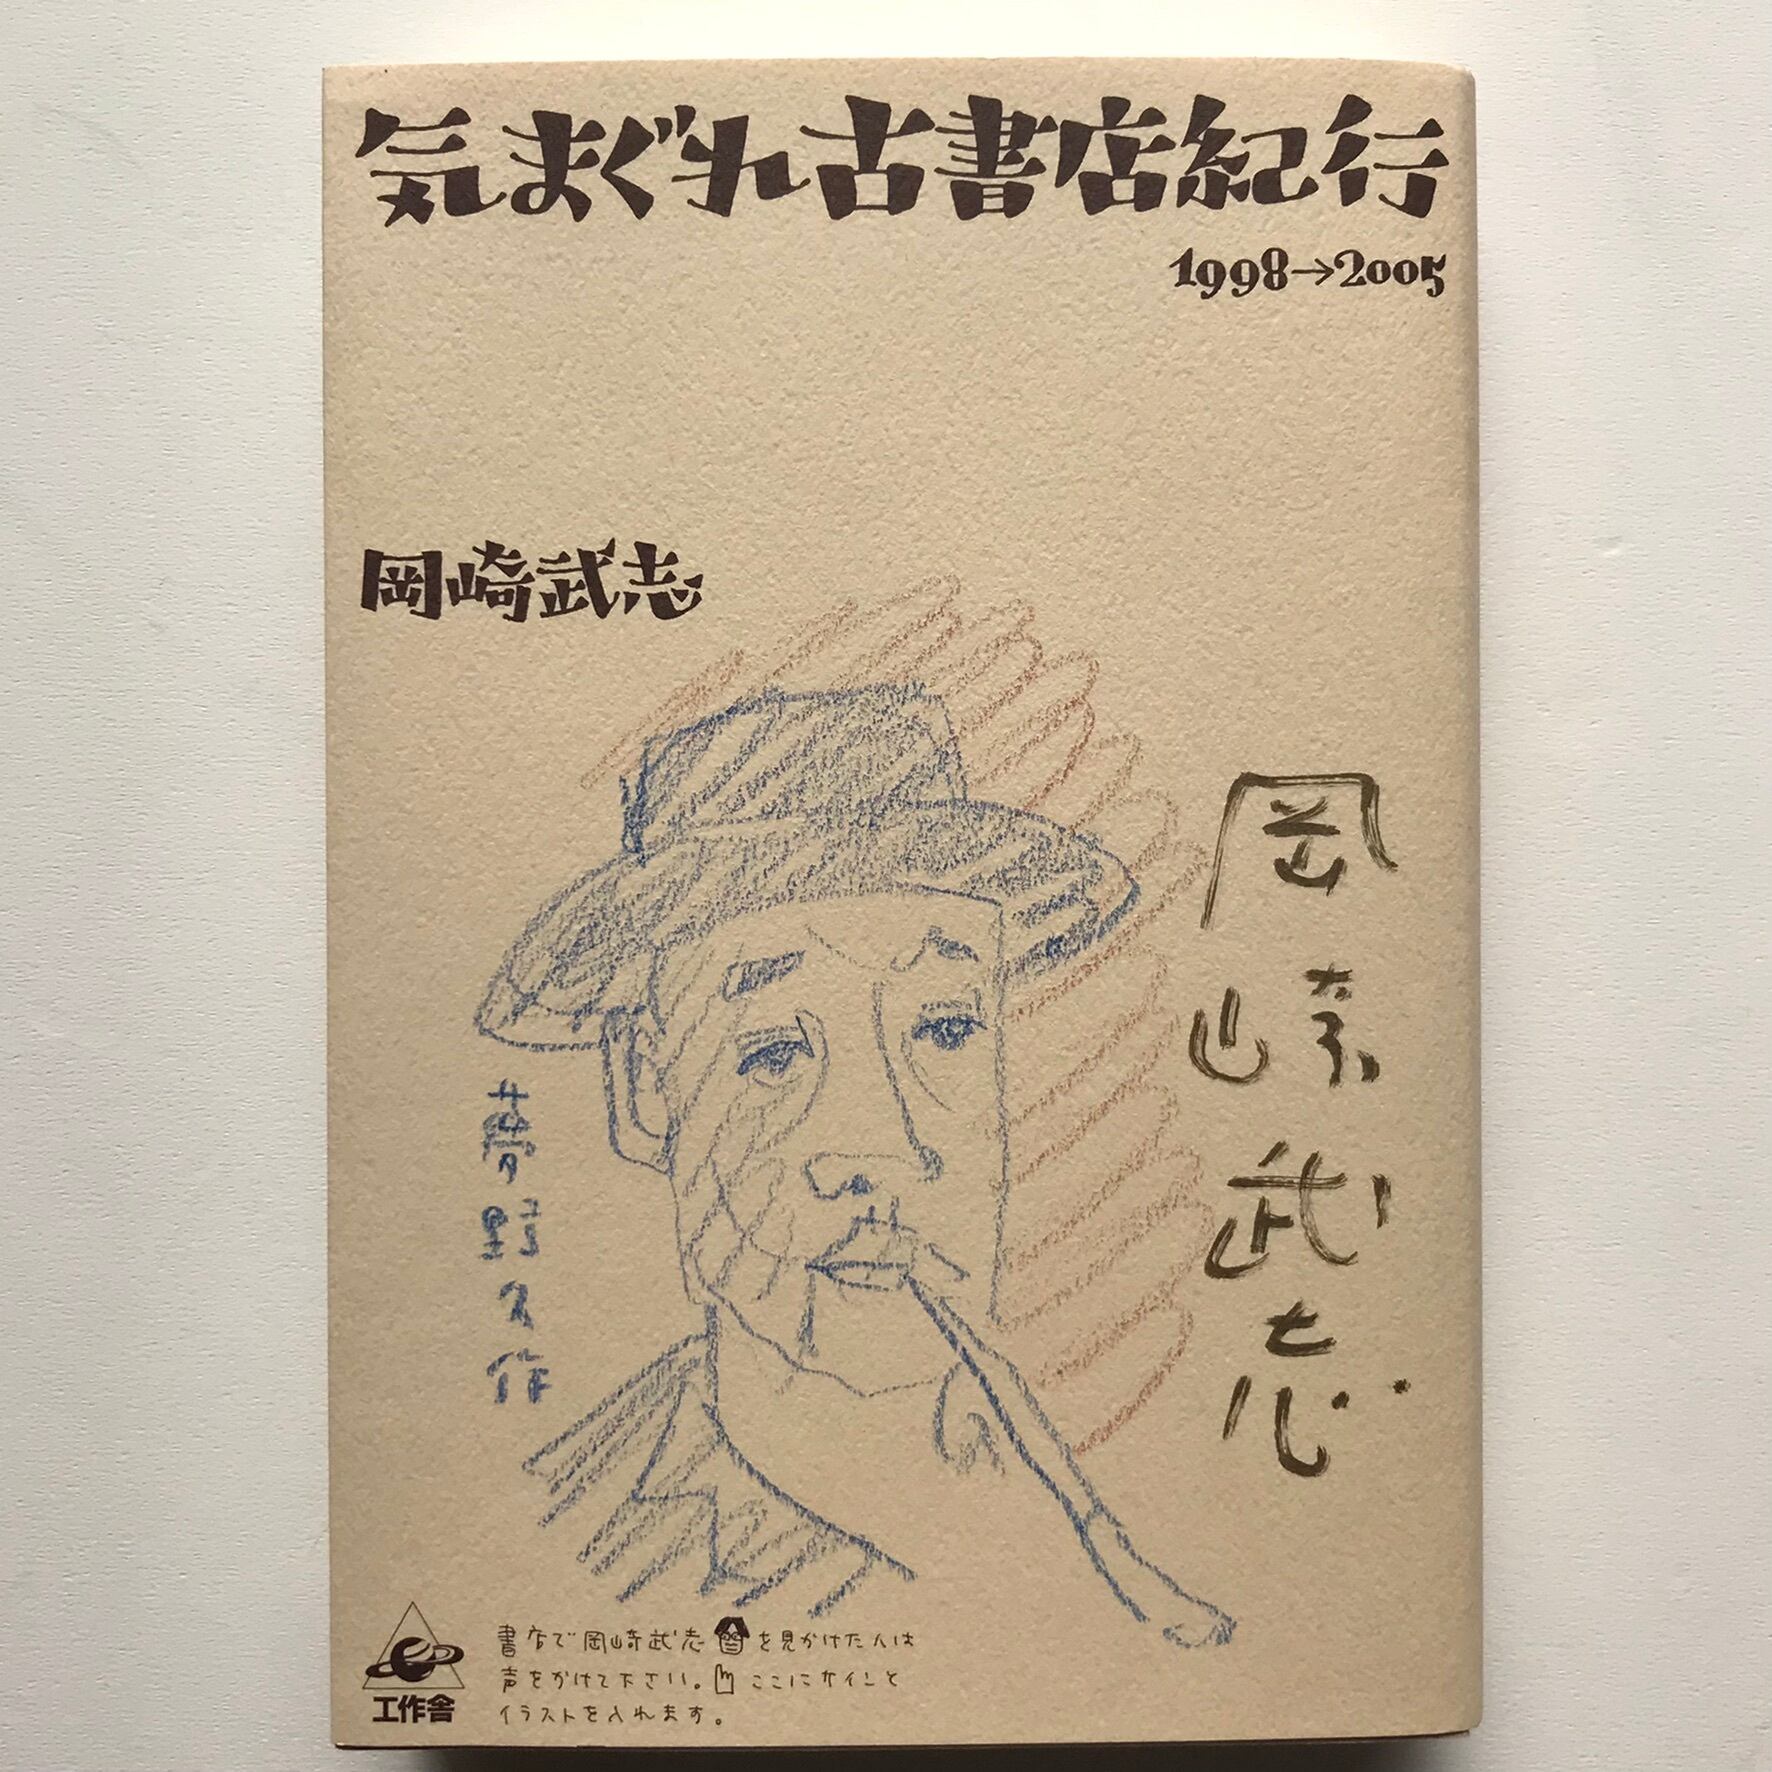 気まぐれ古書店紀行
1998→2005
岡崎武志
岡崎武志
夢野久作
書店で岡崎武志を見かけた人は
声をかけて下さい。ここにサインと
イラストを入れます。
工作舎